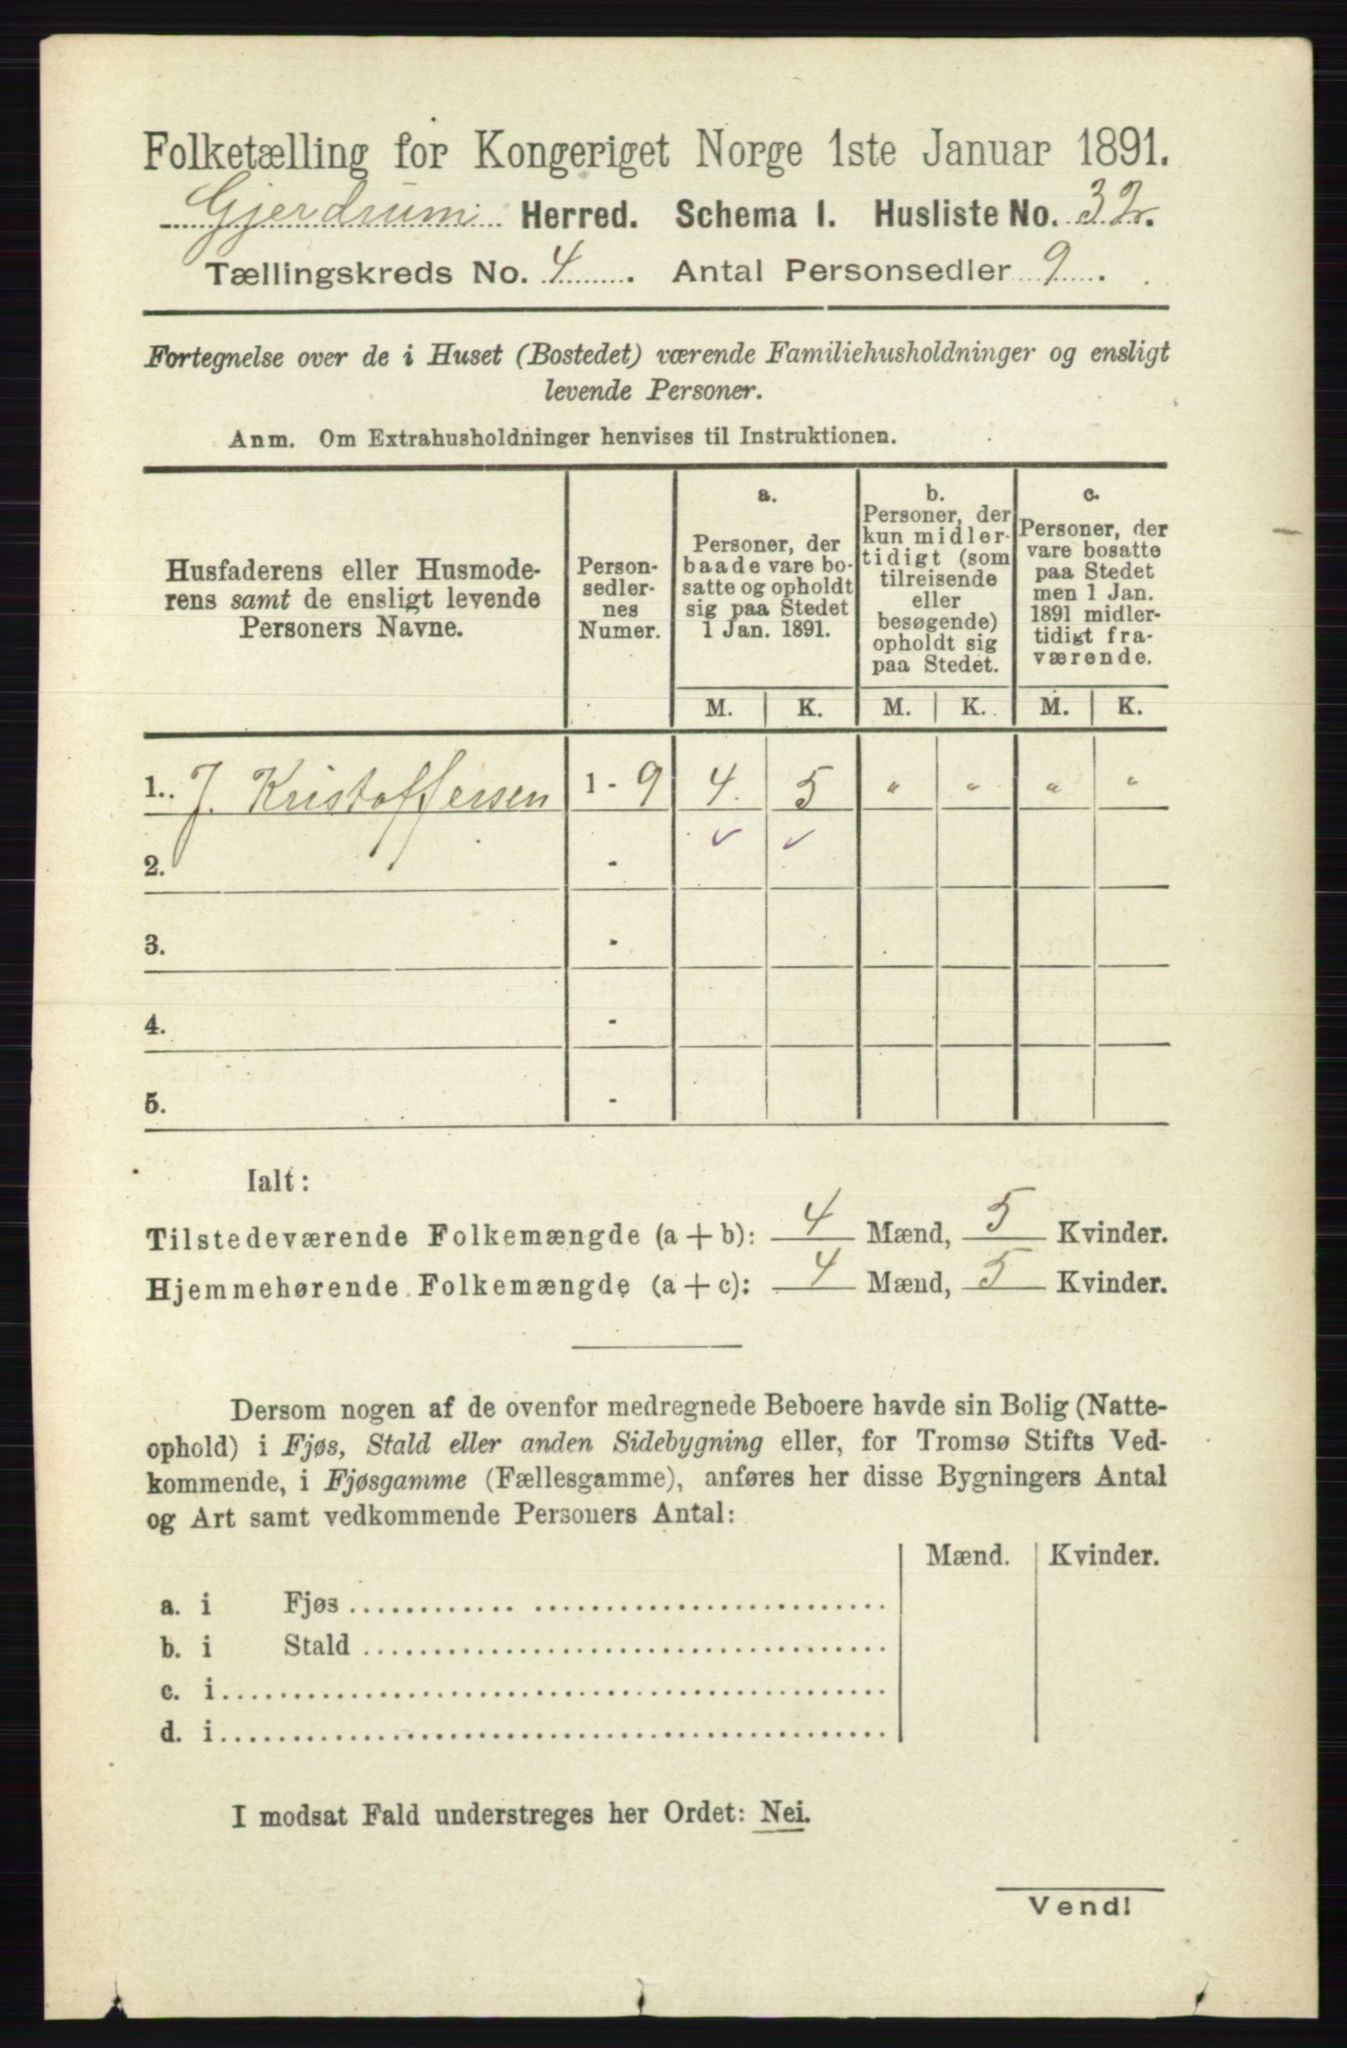 Folketælling for Kongeriget Norge 1ste Januar 1891.
Gjerdrum Herred. Schema I. Husliste No. 32.
Tællingskreds No. 4. Antal Personsedler 9.
Fortegnelse over de i Huset (Bostedet) værende Familiehusholdninger og ensligt
levende Personer.
Anm. Om Extrahusholdninger henvises til Instruktionen.
Husfaderens eller Husmode-
rens samt de ensligt levende
Personers Navne.
Person-
sedler-
nes
Numer.
a.
Personer, der
baade vare bo-
satte og opholdt
sig paa Stedet
1 Jan. 1891.
b.
Personer, der
kun midler-
tidigt (som
tilreisende
eller
besøgende)
opholdt sig
paa Stedet.
c.
Personer, der
vare bosatte
paa Stedet
men 1 Jan.
1891 midler-
tidigt fra-
værende.
M. K. M. K. M. K.
1. J. Kristoffersen 1 - 9 4. 5 " " " "
2. -
3. -
4. -
5. -
Ialt:
Tilstedeværende Folkemængde (a + b): 4 Mænd, 5 Kvinder.
Hjemmehørende Folkemængde (a + c): 4 Mænd, 5 Kvinder.
Dersom nogen af de ovenfor medregnede Beboere havde sin Bolig (Natte-
ophold) i Fjøs, Stald eller anden Sidebygning eller, for Tromsø Stifts Ved-
kommende, i Fjøsgamme (Fællesgamme), anføres her disse Bygningers Antal
og Art samt vedkommende Personers Antal:
Mænd. Kvinder.
a. i Fjøs
b. i Stald
c. i
d. i
I modsat Fald understreges her Ordet: Nei.
Vend!